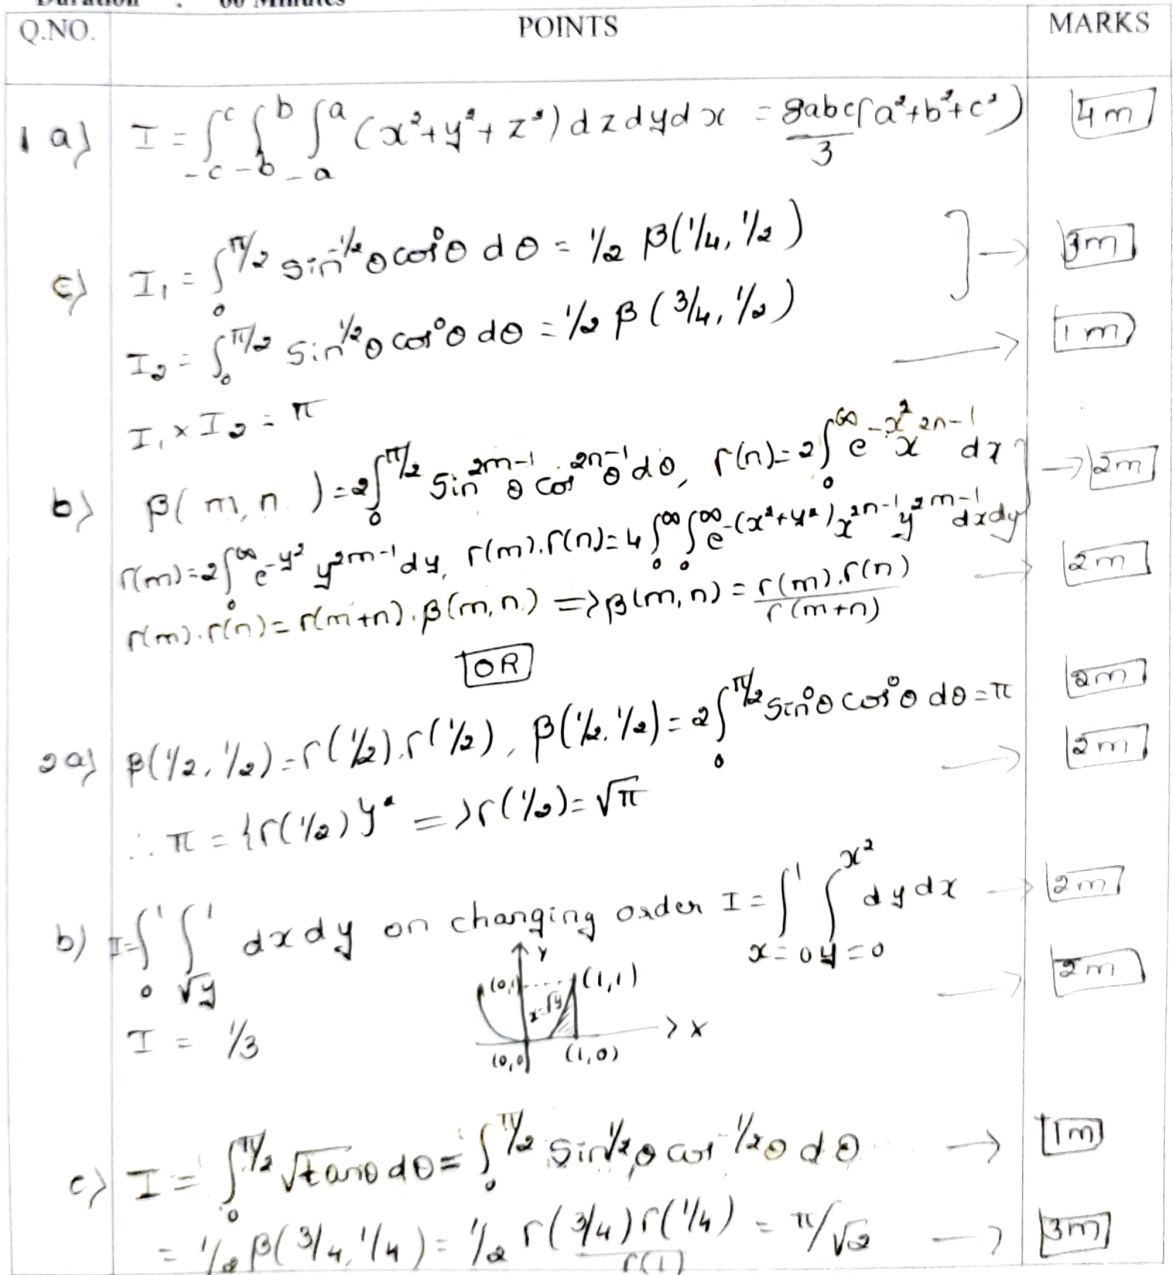 Duration : 60 Minutes
Q.NO. POINTS MARKS
1 a) I = ∫_{-c}^{c} ∫_{-b}^{b} ∫_{-a}^{a} (x²+y²+z²) dz dy dx = 8abc(a²+b²+c²)/3 4m
c) I₁ = ∫_0^{π/2} sin^{-1/2}θ cos⁰θ dθ = 1/2 β(1/4, 1/2) ] → 3m
I₂ = ∫_0^{π/2} sin^{1/2}θ cos⁰θ dθ = 1/2 β(3/4, 1/2) → 1m
I₁ × I₂ = π
b) β(m, n) = 2∫_0^{π/2} sin^{2m-1}θ cos^{2n-1}θ dθ, Γ(n) = 2∫_0^∞ e^{-x²} x^{2n-1} dx → 2m
Γ(m) = 2∫_0^∞ e^{-y²} y^{2m-1} dy, Γ(m).Γ(n) = 4∫_0^∞ ∫_0^∞ e^{-(x²+y²)} x^{2n-1} y^{2m-1} dxdy
Γ(m).Γ(n) = Γ(m+n).β(m,n) => β(m,n) = Γ(m).Γ(n)/Γ(m+n) → 2m
OR
2 a) β(1/2, 1/2) = Γ(1/2).Γ(1/2), β(1/2, 1/2) = 2∫_0^{π/2} sin⁰θ cos⁰θ dθ = π 2m
∴ π = {Γ(1/2)}² => Γ(1/2) = √π → 2m
b) I = ∫_0^1 ∫_{√y}^1 dxdy on changing order I = ∫_{x=0}^1 ∫_{y=0}^{x²} dy dx → 2m
I = 1/3 → 2m
Y
(0,1) (1,1)
x=√y
X
(0,0) (1,0)
c) I = ∫_0^{π/2} √tanθ dθ = ∫_0^{π/2} sin^{1/2}θ cos^{-1/2}θ dθ → 1m
= 1/2 β(3/4, 1/4) = 1/2 Γ(3/4)Γ(1/4)/Γ(1) = π/√2 → 3m